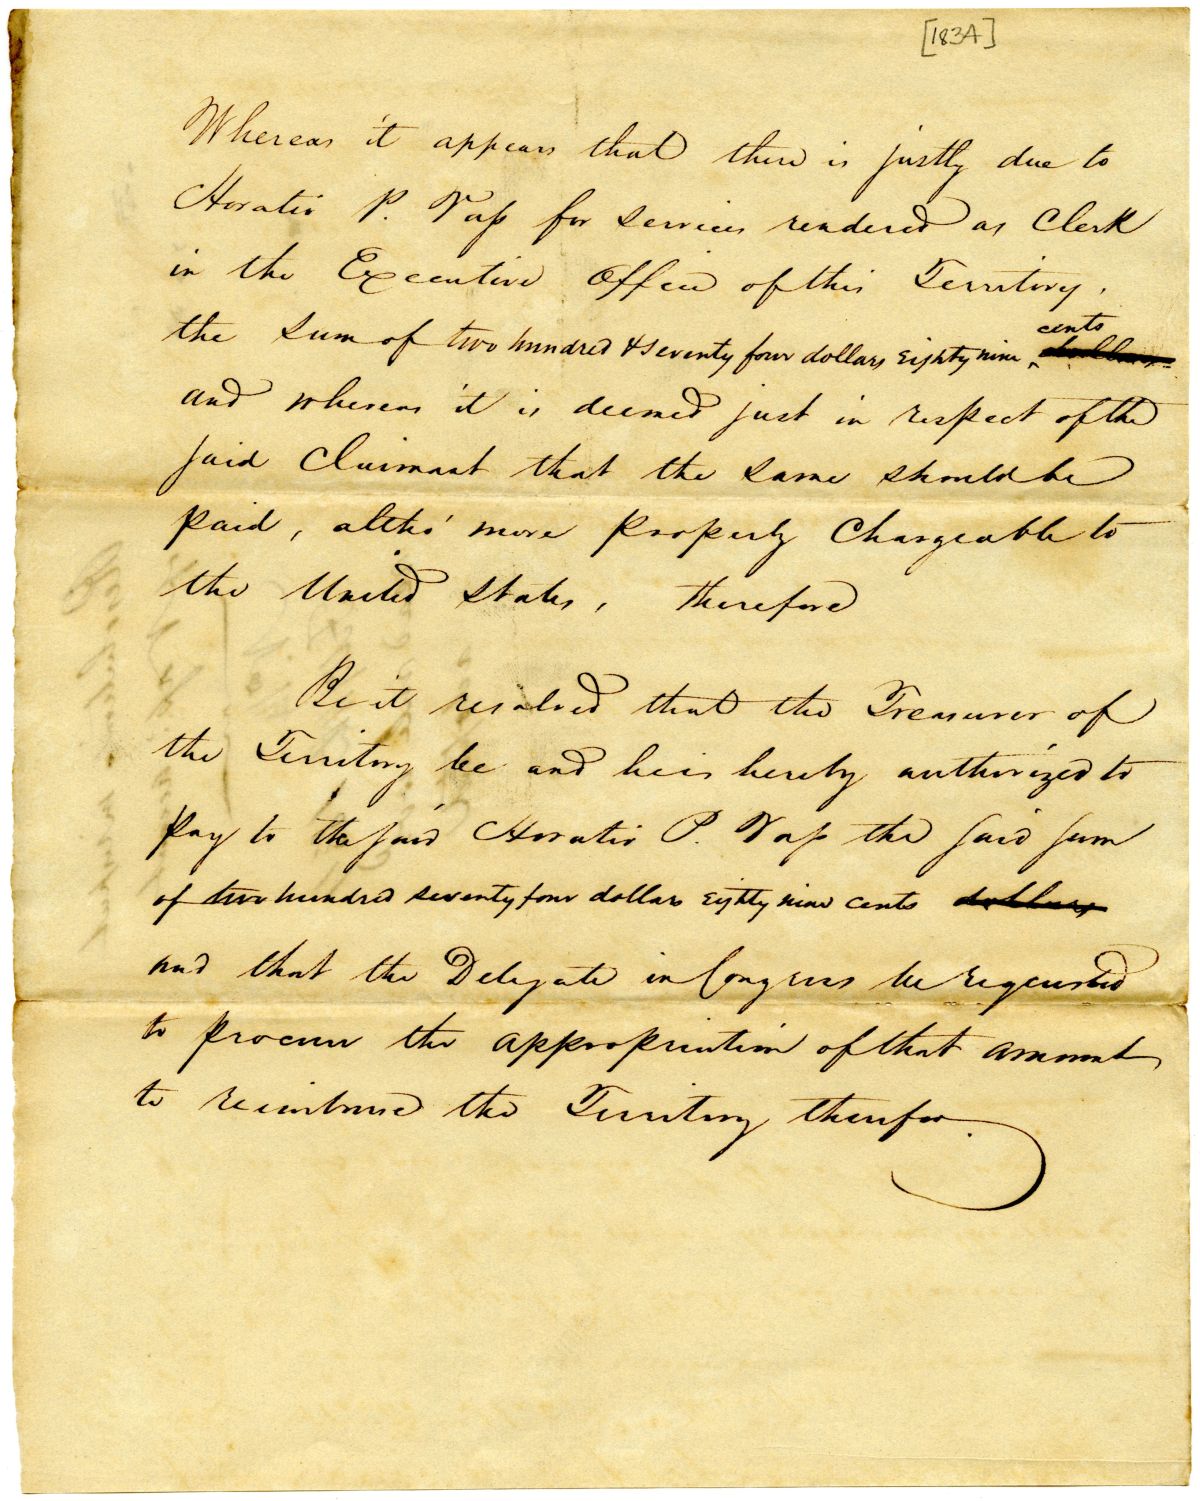 [183A]
Whereas it appears that there is justly due to
Horatio P. Vass for services rendered as Clerk
in the Executive Office of this Territory,
the sum of two hundred & seventy four dollars eighty nine cents dollars
and whereas it is deemed just in respect of the
said Claimant that the same should be
paid, altho' more properly Chargeable to
the United States, therefore
Be it resolved that the Treasurer of
the Territory be and he is hereby authorized to
pay to the said Horatio P. Vass the said sum
of two hundred seventy four dollars eighty nine cents dollars
and that the Delegate in Congress be requested
to procure the appropriation of that amount
to reimburse the Territory therefor.